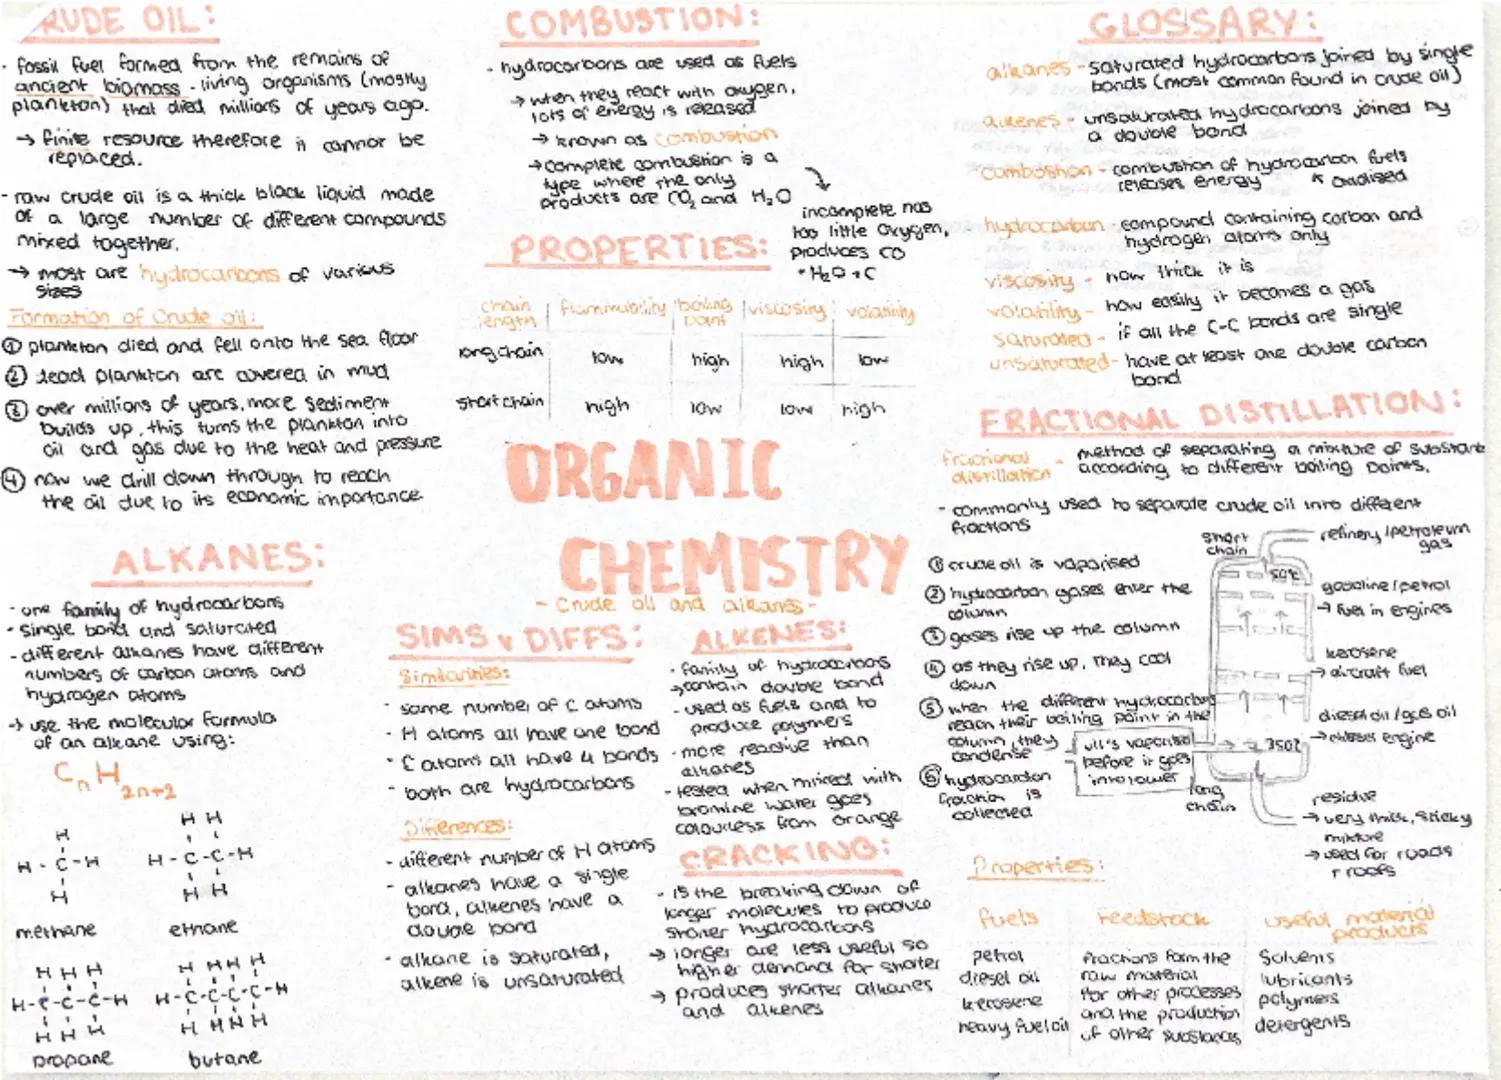 RUDE OIL:
· fossil fuel formed from the remains of
ancient biomass - living organisms (mostly
plankton) that died millions of years ago.
→ finite resource therefore it cannot be
replaced.
- raw crude oil is a thick black liquid made
of a large number of different compounds
mixed together.
→ most are hydrocarbons of various
sizes
Formation of Crude oil:
① plankton died and fell onto the sea floor
② dead plankton are covered in mud
③ over millions of years, more sediment
builds up, this turns the plankton into
oil and gas due to the heat and pressure
④ now we drill down through to reach
the oil due to its economic importance
ALKANES:
- one family of hydrocarbons
- single bond and saturated
- different alkanes have different
numbers of carbon atoms and
hydrogen atoms
→ use the molecular formula
of an alkane using:
CnH2n+2
H
H - C - H
H
methane
H H
H - C - C - H
H H
ethane
H H H
H - C - C - C - H
H H H
propane
H H H H
H - C - C - C - C - H
H H H H
butane
COMBUSTION:
· hydrocarbons are used as fuels
→ when they react with oxygen,
lots of energy is released
→ known as combustion
→ complete combustion is a
type where the only
products are CO₂ and H₂O
incomplete has
too little oxygen,
produces CO
+ H₂O + C
PROPERTIES:
chain length | flammability | boiling point | viscosity | volatility
long chain low high high low
short chain high low low high
ORGANIC
CHEMISTRY
- Crude oil and alkanes -
SIMS v DIFFS:
Similarities:
· same number of C atoms
· H atoms all have one bond
· C atoms all have 4 bonds
· both are hydrocarbons
Differences:
- different number of H atoms
- alkanes have a single
bond, alkenes have a
double bond
- alkane is saturated,
alkene is unsaturated
ALKENES:
· family of hydrocarbons
→ contain double bond
- used as fuels and to
produce polymers
- more reactive than
alkanes
- tested when mixed with
bromine water goes
colourless from orange
CRACKING:
- is the breaking down of
longer molecules to produce
shorter hydrocarbons
→ longer are less useful so
higher demand for shorter
→ produces shorter alkanes
and alkenes
GLOSSARY:
alkanes - saturated hydrocarbons joined by single
bonds (most common found in crude oil)
alkenes - unsaturated hydrocarbons joined by
a double bond
combustion - combustion of hydrocarbon fuels
releases energy ↖ oxidised
hydrocarbon - compound containing carbon and
hydrogen atoms only
viscosity - how thick it is
volatility - how easily it becomes a gas
saturated - if all the C-C bonds are single
unsaturated - have at least one double carbon
bond
FRACTIONAL DISTILLATION:
fractional distillation - method of separating a mixture of substan
according to different boiling points.
- commonly used to separate crude oil into different
fractions
① crude oil is vaporised
② hydrocarbon gases enter the
column
③ gases rise up the column
④ as they rise up, they cool
down
⑤ when the different hydrocarbons
reach their boiling point in the
column, they
condense
⑥ hydrocarbon
fraction is
collected
vaporised
before it goes
into
short
chain
50°C
350°
long
chain
refinery / petroleum
gas
gasoline / petrol
→ fuel in engines
kerosene
→ aircraft fuel
diesel oil / gas oil
→ engine
residue
→ very thick, sticky
mixture
→ used for roads
+ roofs
Properties:
fuels
petrol
diesel oil
kerosene
heavy fuel oil
feedstock
fractions form the
raw material
for other processes
and the production
of other substances
useful material
products
solvents
lubricants
polymers
detergents